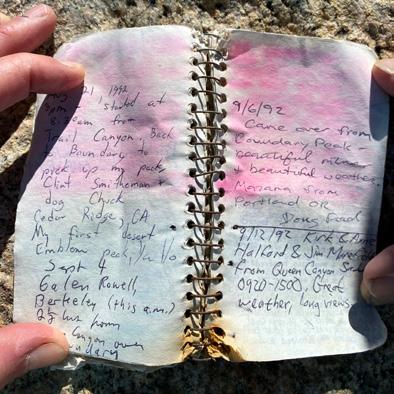 21, 1992
3pm - started at
8:25am from
Trail Canyon. Back
to Boundary to
pick up my pack
Clint Smitheman +
dog Chuck
Cedar Ridge, CA
My first desert
Emblem peak,
Sept 4
Galen Rowell,
Berkeley (this a.m.)
2½ hrs from
Canyon over
Boundary
9/6/92
Came over from
Boundary Peak -
beautiful
+ beautiful weather.
from
Portland OR
Doug
9/12/92 Kirk &
Halford & Jim
from Queen Canyon
0920-1500, Great
weather, long views